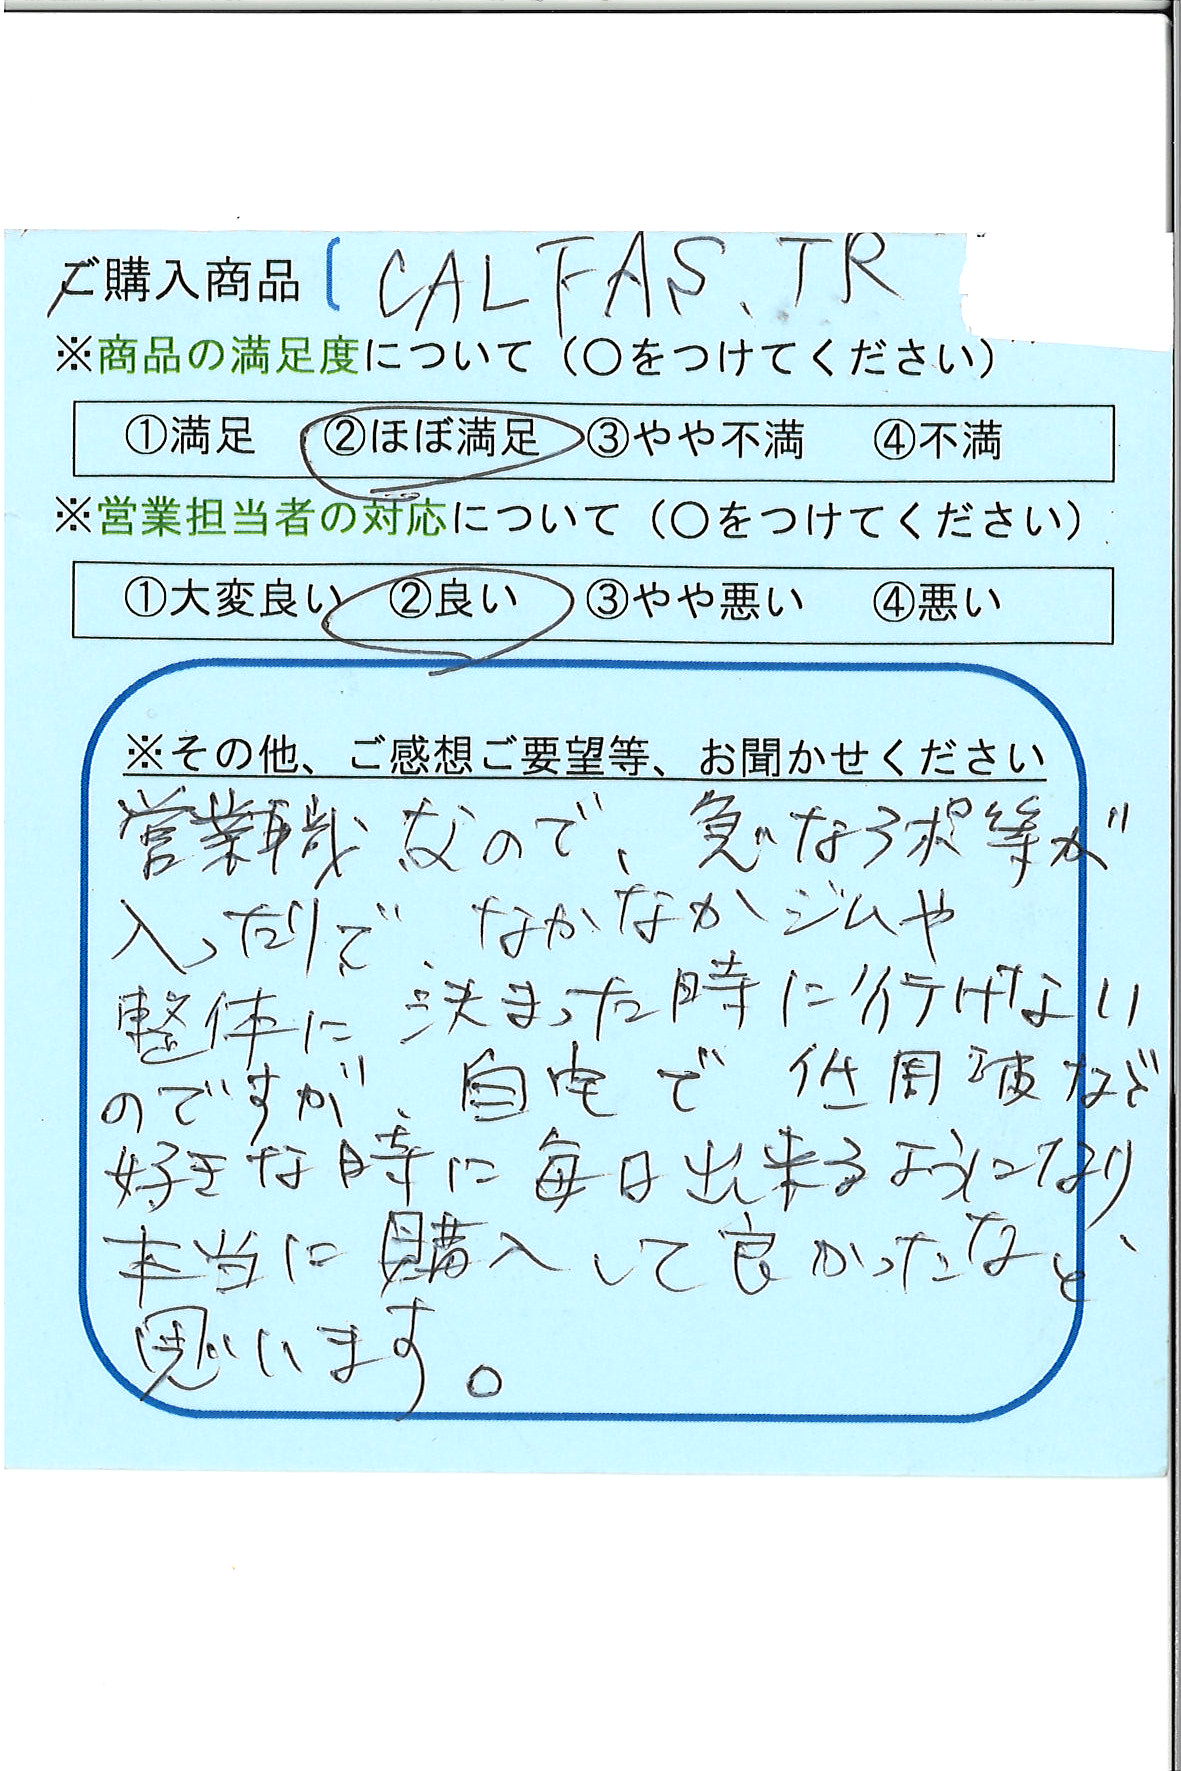 ご購入商品 [ CALFAS.TR
※商品の満足度について（〇をつけてください）
①満足 ②ほぼ満足 ③やや不満 ④不満
※営業担当者の対応について（〇をつけてください）
①大変良い ②良い ③やや悪い ④悪い
※その他、ご感想ご要望等、お聞かせください
営業職なので、急なアポ等が
入ったりで、なかなかジムや
整体に決まった時に行けない
のですが、自宅で低周波など
好きな時に毎日出来るようになり
本当に購入して良かったなと、
思います。